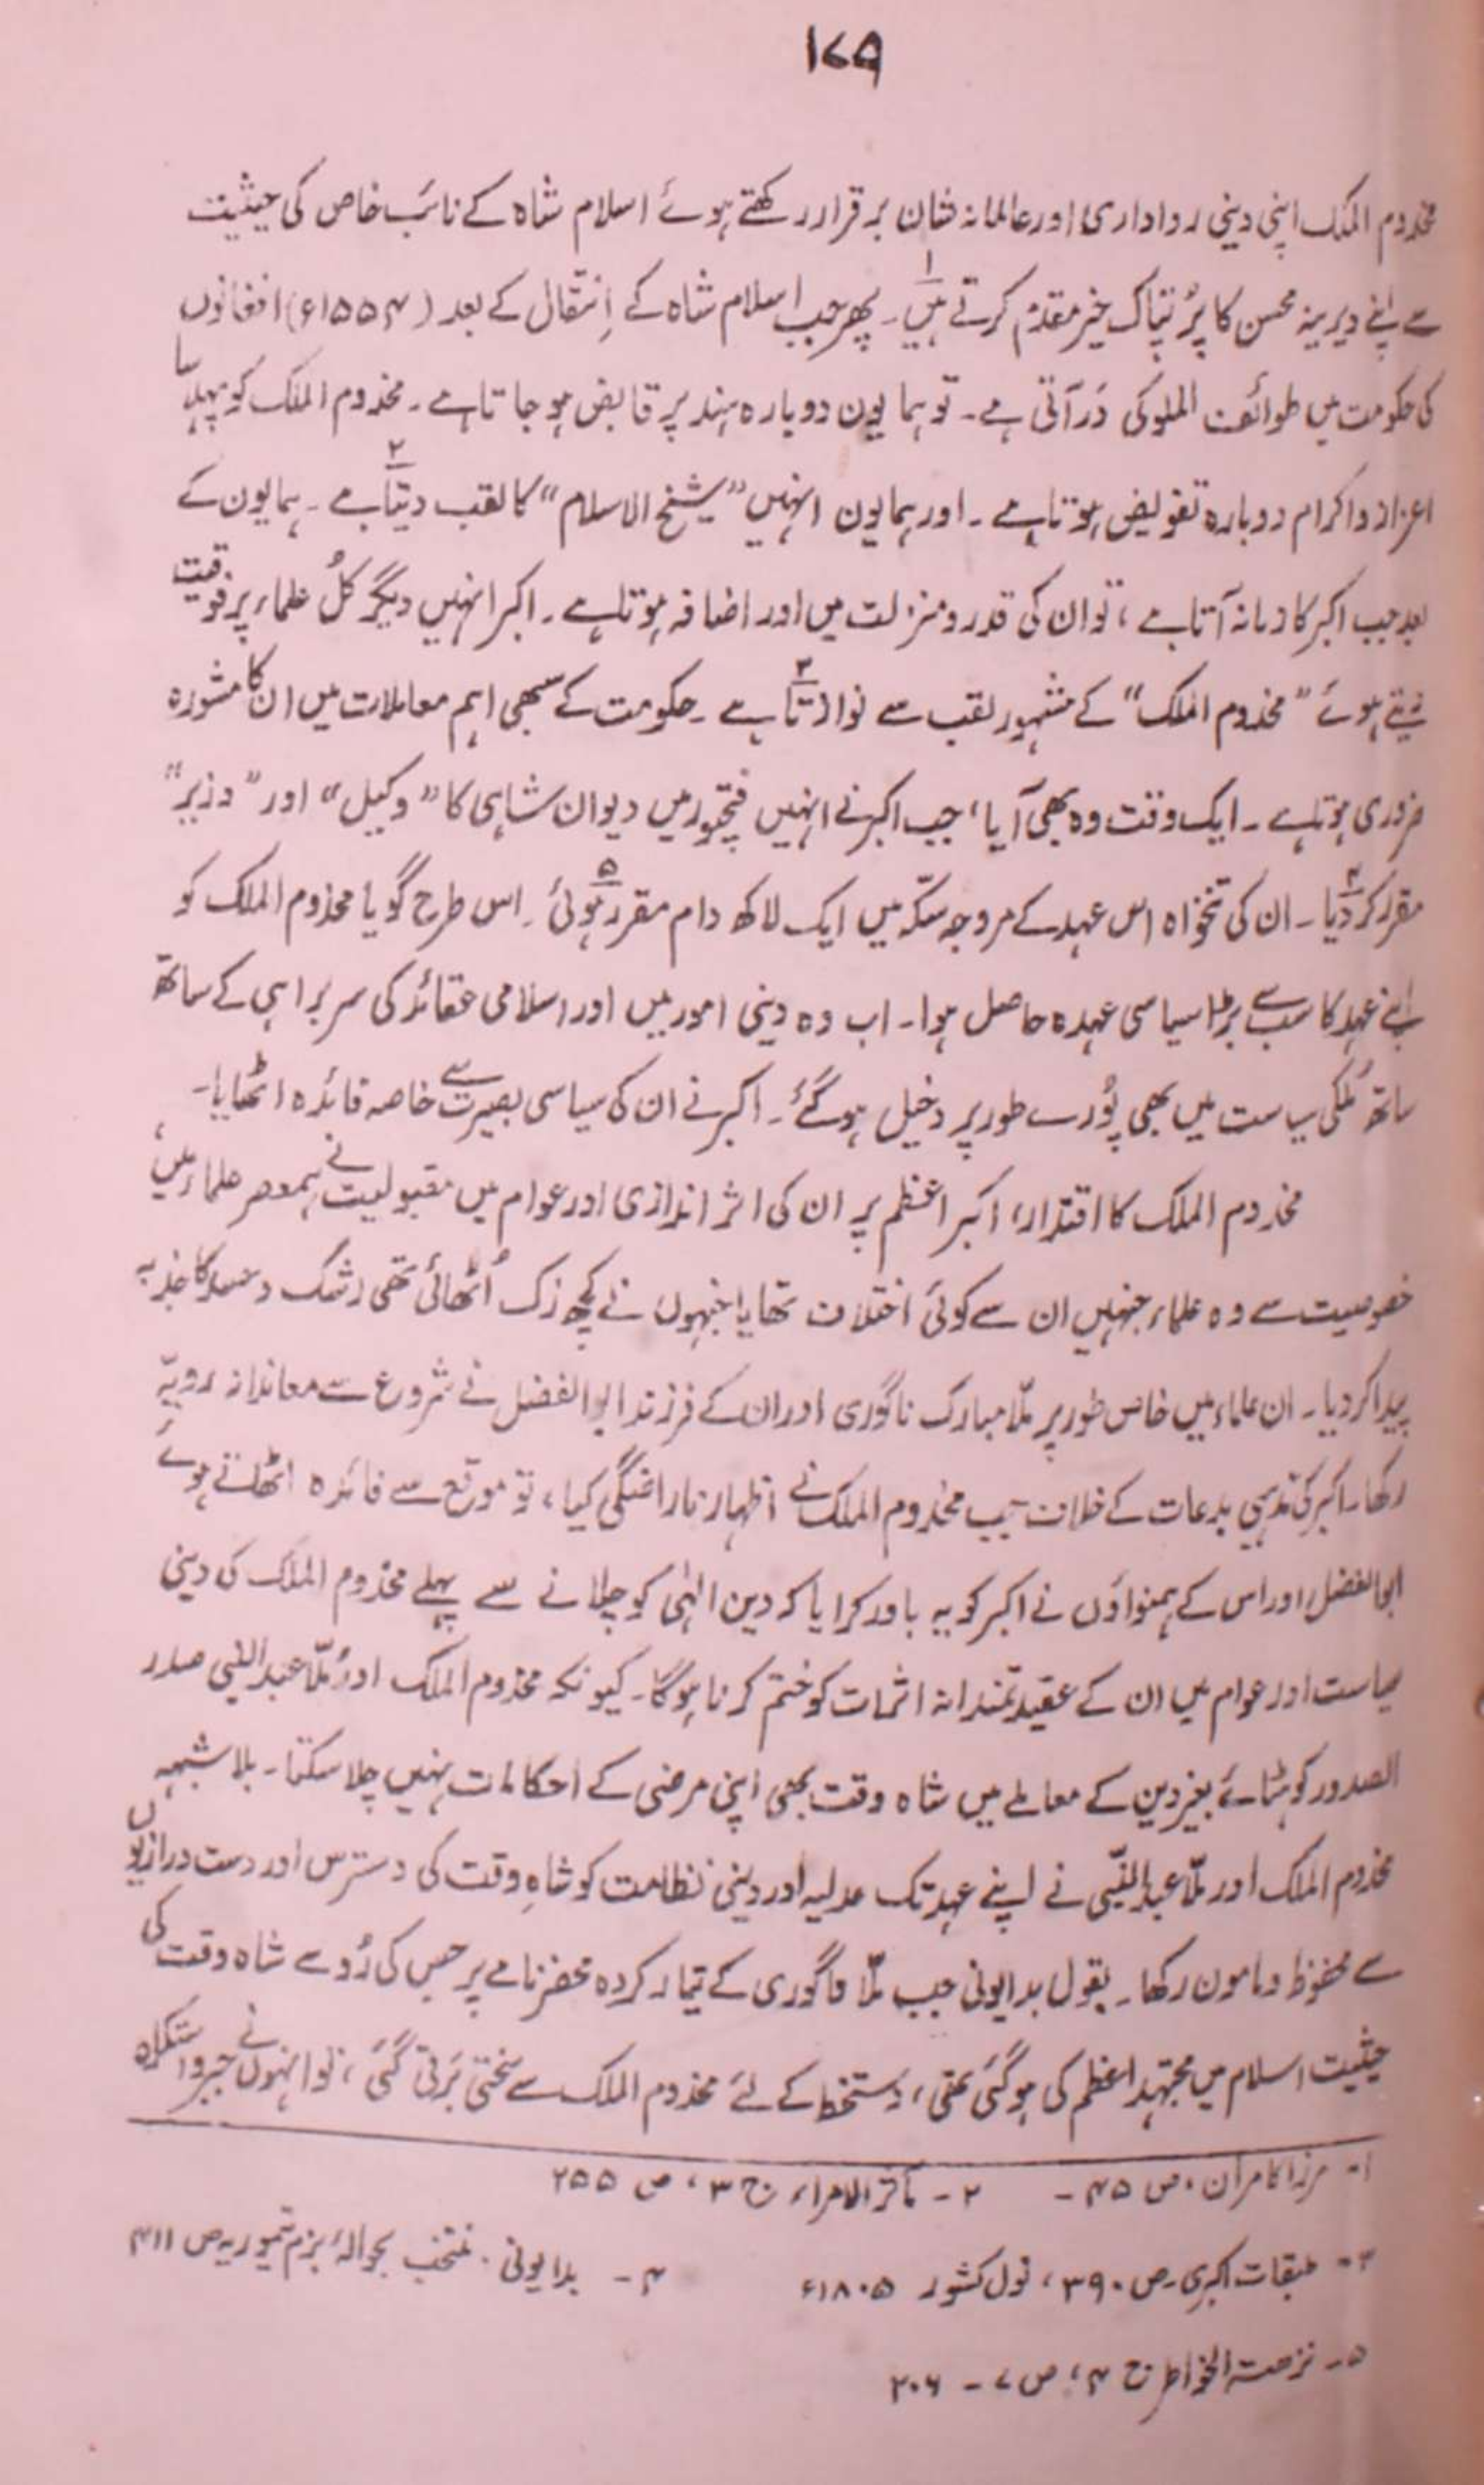 ۱۷۹
مخدوم الملک اپنی دینی رواداری اور عالمانہ شان برقرار رکھتے ہوئے اسلام شاہ کے نائب خاص کی حیثیت
سے اپنے دیرینہ محسن کا پُر تپاک خیر مقدم کرتے ہیں۱۔ پھر جب اسلام شاہ کے اِنتقال کے بعد (۱۵۵۴ء) افغانوں
کی حکومت میں طوائف الملوکی دَر آتی ہے۔ تو ہمایوں دوبارہ ہند پر قابض ہو جاتا ہے۔ مخدوم الملک کو پہلا سا
اعزاز و اکرام دوبارہ تفویض ہوتا ہے۔ اور ہمایون انہیں "شیخ الاسلام" کا لقب دیتا۲ ہے۔ ہمایون کے
بعد جب اکبر کا زمانہ آتا ہے، تو ان کی قدر و منزلت میں اور اضافہ ہوتا ہے۔ اکبر انہیں دیگر کُل علماء پر فوقیت
دیتے ہوئے "مخدوم الملک" کے مشہور لقب سے نوازتا۳ ہے۔ حکومت کے سبھی اہم معاملات میں ان کا مشورہ
ضروری ہوتا ہے۔ ایک وقت وہ بھی آیا، جب اکبر نے انہیں فتچپور میں دیوان شاہی کا "وکیل" اور "وزیر"
مقرر کر دیا۴۔ ان کی تنخواہ اس عہد کے مروجہ سکّہ میں ایک لاکھ دام مقرر ہوئی۵۔ اس طرح گویا مخدوم الملک کو
اپنے عہد کا سب سے بڑا سیاسی عہدہ حاصل ہوا۔ اب وہ دینی امور میں اور اسلامی عقائد کی سربراہی کے ساتھ
ساتھ مُلکی سیاست میں بھی پُورے طور پر دخیل ہو گئے۔ اکبر نے ان کی سیاسی بصیرت سے خاصہ فائدہ اٹھایا۔
مخدوم الملک کا اقتدار، اکبر اعظم پر ان کی اثر اندازی اور عوام میں مقبولیت نے ہمعصر علماء میں،
خصوصیت سے وہ علماء جنہیں ان سے کوئی اختلاف تھا یا جنہوں نے کچھ زک اُٹھائی تھی رشک و حسد کا جذبہ
پیدا کر دیا۔ ان علماء میں خاص طور پر ملّا مبارک ناگوری اور ان کے فرزند ابوالفضل نے شروع سے معاندانہ رویّہ
رکھا۔ اکبر کی مذہبی بدعات کے خلاف جب مخدوم الملک نے اظہار ناراضگی کیا، تو موقع سے فائدہ اٹھاتے ہوئے
ابوالفضل اور اس کے ہمنواؤں نے اکبر کو یہ باور کرایا کہ دین الہٰی کو چلانے سے پہلے مخدوم الملک کی دینی
سیاست اور عوام میں ان کے عقیدتمندانہ اثرات کو ختم کرنا ہوگا۔ کیونکہ مخدوم الملک اور مُلّا عبدالنبی صدر
الصدور کو ہٹائے بغیر دین کے معاملے میں شاہ وقت بھی اپنی مرضی کے احکامات نہیں چلا سکتا۔ بلا شبہہ
مخدوم الملک اور ملّا عبدالنّبی نے اپنے عہد تک عدلیہ اور دینی نظامت کو شاہِ وقت کی دسترس اور دست درازیوں
سے محفوظ و مامون رکھا۔ بقول بدایونی جب ملّا ناگوری کے تیار کردہ محضر نامے پر جس کی رُو سے شاہ وقت کی
حیثیت اسلام میں مجتہد اعظم کی ہو گئی تھی، دستخط کے لئے مخدوم الملک سے سختی بَرتی گئی، تو انہوں نے جبر و استکراہ
۱- مرزا کامران، ص ۴۵ – ۲ – مآثر الامراء ج ۳، ص ۲۵۵
۳- طبقات اکبری۔ ص ۳۹۰، نول کشور ۱۸۰۵ء ۴ – بدایونی، منتخب بحوالۂ بزم تیموریہ ص ۴۱۱
۵- نزھتہ الخواطر ج ۴، ص ۷ – ۲۰۶